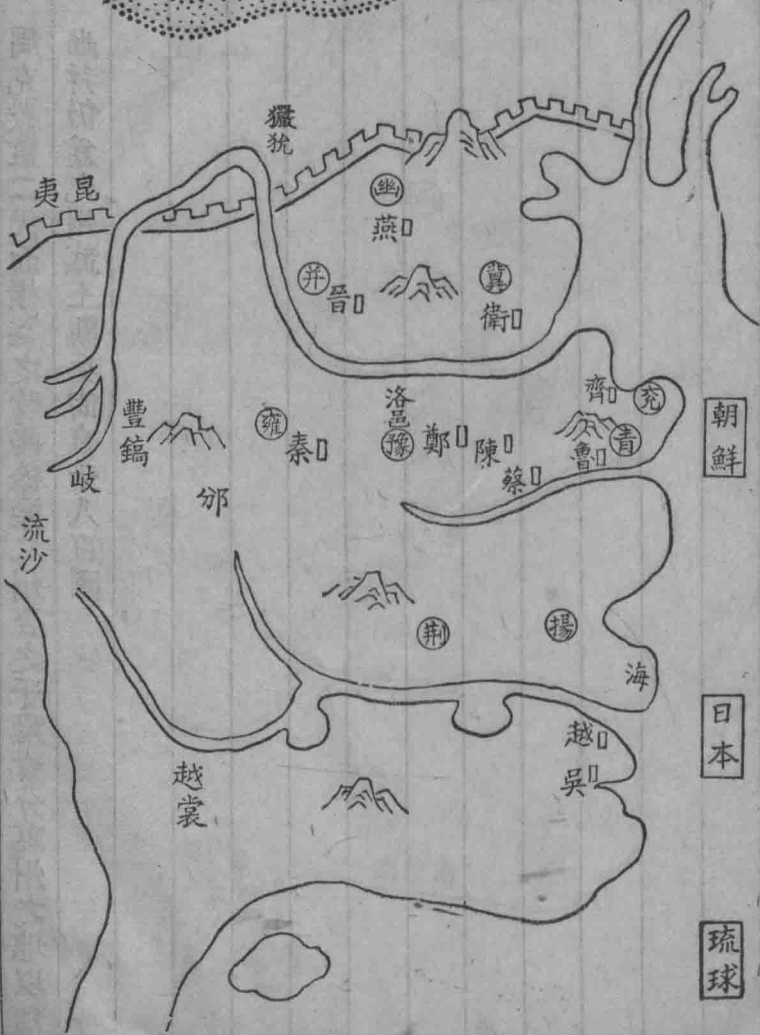 玁狁
昆夷
幽
燕
并
晉
冀
衛
齊
兗
朝鮮
豐鎬
雍
秦
洛邑
豫
鄭
陳
蔡
魯
青
岐
邠
流沙
荆
揚
海
日本
越
吳
越裳
琉球